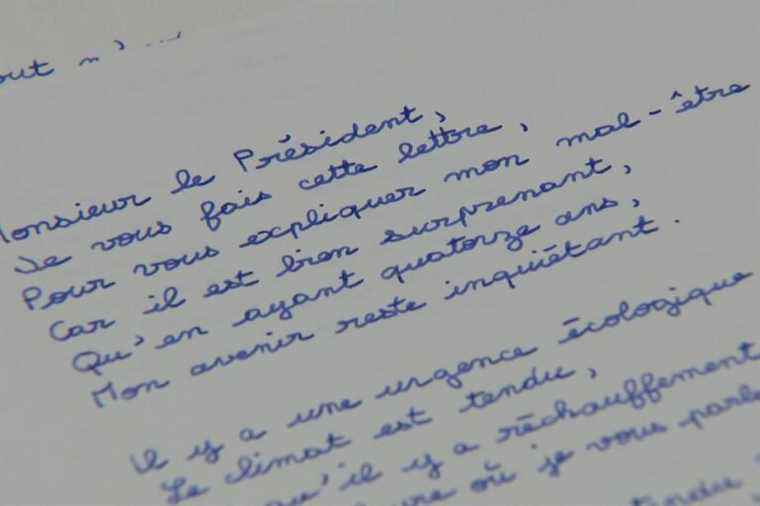 Monsieur le Président,
Je vous fais cette lettre,
Pour vous expliquer mon mal-être
Car il est bien surprenant,
Qu'en ayant quatorze ans,
Mon avenir reste inquiétant.
Il y a une urgence écologique
Le climat est tendu,
qu'il y a réchauffement
où je vous parle
tendu